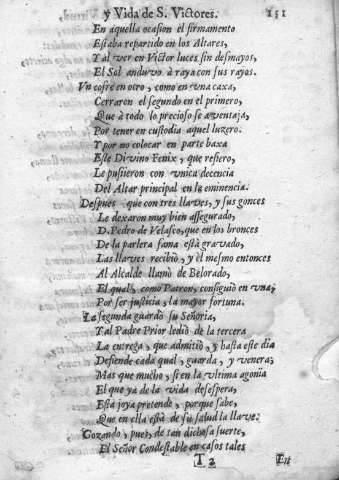 y Vida de S. Victores. 151
En aquella ocasion el firmamento
Estaba repartido en los Altares,
Y al ver en Victor luces sin desmayos,
El Sol anduvo à raya con sus rayos.
Vn cofre en otro, como en vna caxa,
Cerraron el segundo en el primero,
Que à todo lo precioso se aventaja,
Por tener en custodia aquel luzero.
Y por no colocar en parte baxa
Este Divino Fenix, que refiero,
Le pusieron con vnica decencia
Del Altar principal en la eminencia.
Despues que con tres llaves, y sus gonces
Le dexaron muy bien assegurado,
D. Pedro de Velasco, que en los bronces
De la parlera fama està gravado,
Las llaves recibiò, y èl mesmo entonces
Al Alcalde llamò de Belorado,
El qual, como Patron, consiguiò en vna,
Por ser justicia, la mayor fortuna.
La segunda guardò su Señoria,
Y al Padre Prior lediò de la tercera
La entrega, que admitiò, y hasta este dia
Defiende cada qual, guarda, y venera;
Mas que mucho, si en la vltima agonia
El que ya de la vida desespera,
Esta joya pretende, porque sabe,
Que en ella està de su salud la llave?
Gozando, pues, de tan dichosa suerte,
El Señor Condestable en casos tales
T 2